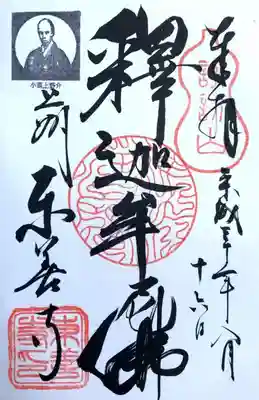 奉拝
平成三十年八月
十六日
釋迦牟尼佛
小栗上野介
上州 東善寺